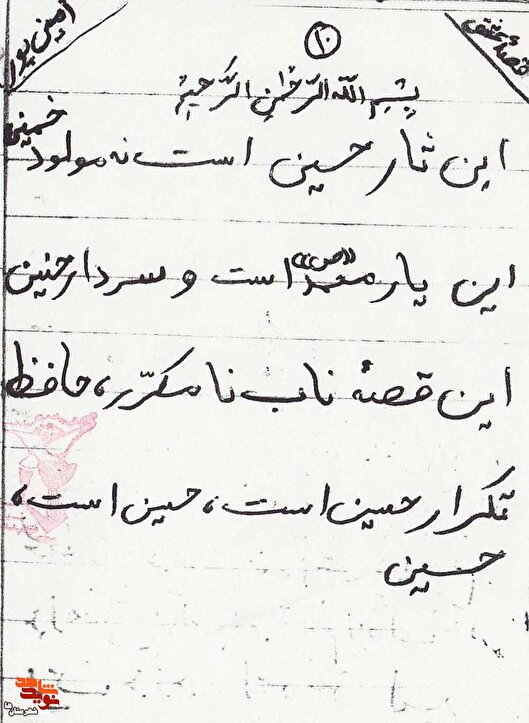 قصهٔ عشق
۱۰
امین پور
بِسْمِ اللّهِ الرَّحْمٰنِ الرَّحیْمِ
این ثار حسین است نه مولود خمینی
این یار محمد (ص) است و سردار حنین
این قصهٔ ناب نا مکرّر، حافظ
تکرار حسین است، حسین است،
حسین
نوید شاهد